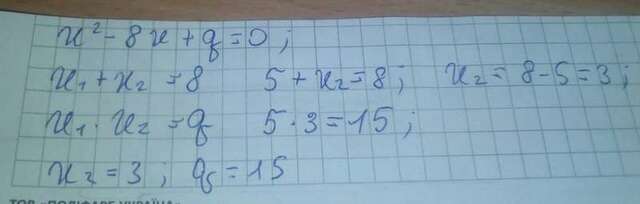 x² - 8x + q = 0;
x₁ + x₂ = 8 5 + x₂ = 8; x₂ = 8 - 5 = 3;
x₁ · x₂ = q 5 · 3 = 15;
x₂ = 3; q = 15